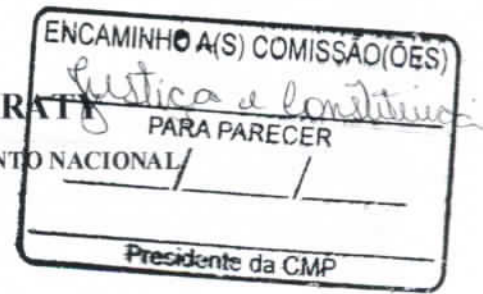 ENCAMINHO A(S) COMISSÃO(ÕES)
Justiça e Constituiçã
RATY
PARA PARECER
NTO NACIONAL
/ /
Presidente da CMP